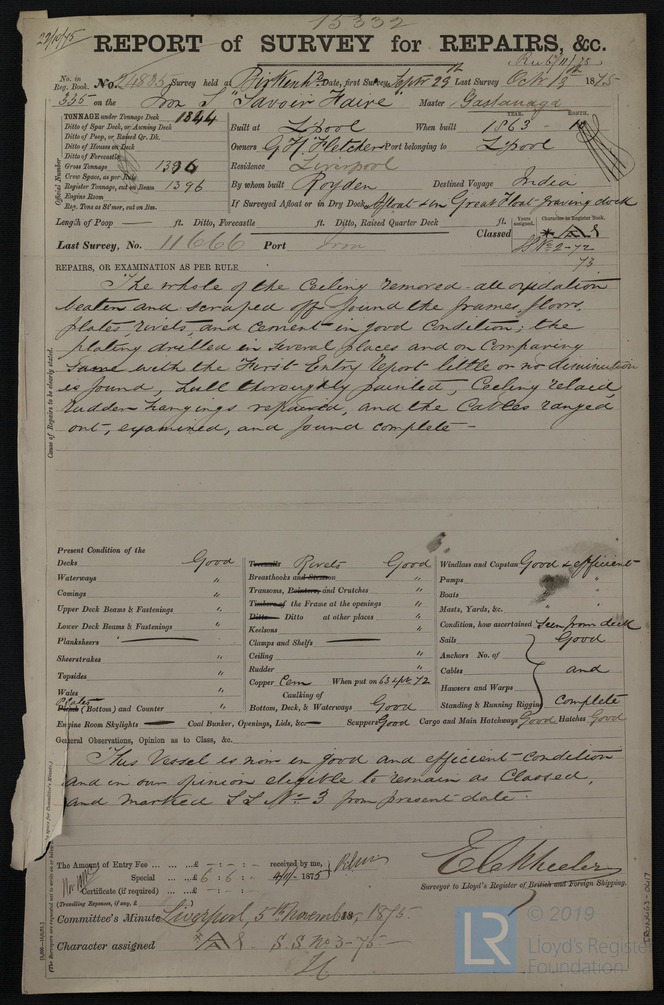 15332
29/10/75
REPORT of SURVEY for REPAIRS, &c.
No. in Reg. Book. No. 24835 Survey held at Birkenhd Date, first Survey Septr 23rd Last Survey Octr 13th 1875
335 on the Iron S "Savoir Faire" Master Gastanaga
TONNAGE under Tonnage Deck 1344
Ditto of Spar Deck, or Awning Deck
Ditto of Poop, or Raised Qr. Dk.
Ditto of Houses on Deck
Ditto of Forecastle
Gross Tonnage 1396
Crew Space, as per Rule
Register Tonnage, cut on Beam 1396
Engine Room
Reg. Tons as St'mer, cut on Bm.
Official Number
YEAR. MONTH.
Built at L'pool When built 1863 10
Owners G H Fletcher Port belonging to L'pool
Residence Liverpool
By whom built Royden Destined Voyage India
If Surveyed Afloat or in Dry Dock Afloat & in Great Float Graving dock
Length of Poop ft. Ditto, Forecastle ft. Ditto, Raised Quarter Deck ft.
Years assigned. Character in Register Book.
Classed
Last Survey, No. 11666 Port Iron
No 2-72
73
REPAIRS, OR EXAMINATION AS PER RULE
Cause of Repairs to be clearly stated.
The whole of the Ceiling removed all oxidation
beaten and scraped off found the frames, floors,
plates, rivets, and cement in good condition; the
plating drilled in several places and on Comparing
same with the First Entry Report little or no diminution
is found, hull thoroughly painted, Ceiling relaid,
rudder hangings repaired, and the Cables ranged
out, examined, and found complete -
Present Condition of the
Decks Good
Waterways "
Comings "
Upper Deck Beams & Fastenings "
Lower Deck Beams & Fastenings "
Planksheers
Sheerstrakes "
Topsides "
Wales "
Plates
(Bottom) and Counter "
Treenails Rivets Good
Breasthooks and Stemson "
Transoms, Pointers, and Crutches "
Timbers of the Frame at the openings "
Ditto Ditto at other places "
Keelsons "
Clamps and Shelfs
Ceiling "
Rudder "
Copper Cem When put on 63 & pt 72
Caulking of
Bottom, Deck, & Waterways Good
Windlass and Capstan Good & efficient
Pumps "
Boats "
Masts, Yards, &c. " "
Condition, how ascertained Seen from deck
Sails Good
Anchors No. of
Cables and
Hawsers and Warps
Standing & Running Rigging complete
Engine Room Skylights Coal Bunker, Openings, Lids, &c. Scuppers Good Cargo and Main Hatchways Good Hatches Good
General Observations, Opinion as to Class, &c.
This Vessel is now in good and efficient condition
and in our opinion eligible to remain as Classed,
and marked S S No 3 from present date.
The Amount of Entry Fee ... ... ...£ - : - : - received by me,
Special ... ...£ 6 : 6 : - 4/11/ 1875
Certificate (if required) ... ...£ - : - : -
(Travelling Expenses, if any, £
E C Wheeler
Surveyor to Lloyd's Register of British and Foreign Shipping.
Committee's Minute Liverpool, 5th November 18, 1875.
Character assigned A S.S. No 3-75.-
© 2019
LR
Lloyd's Register
Foundation
IRON463-0417